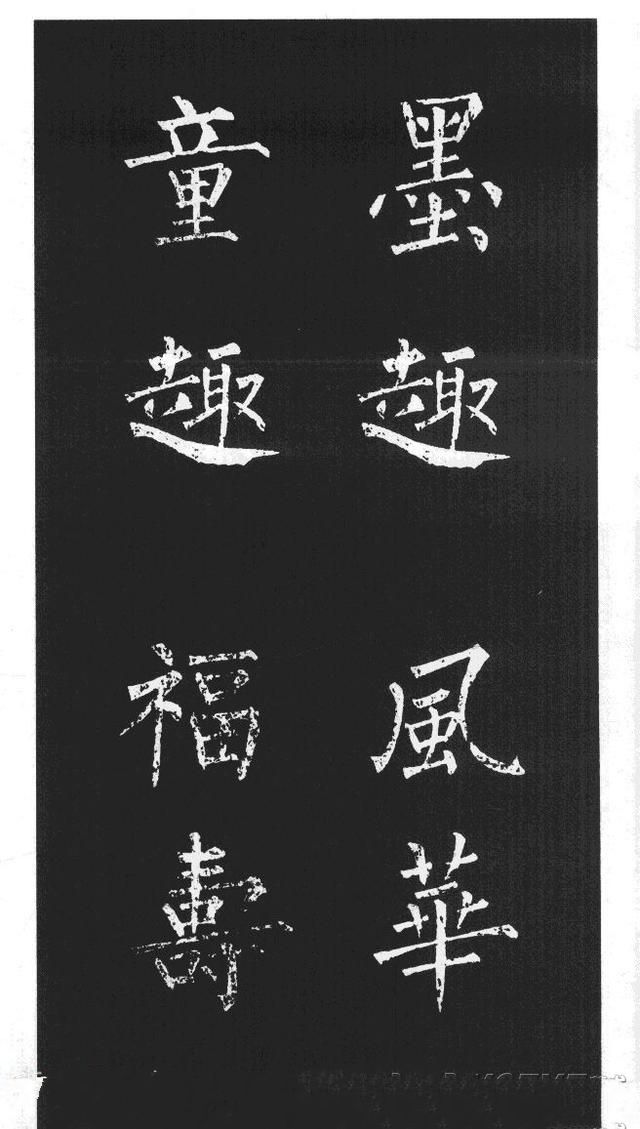 墨趣
風華
童趣
福壽